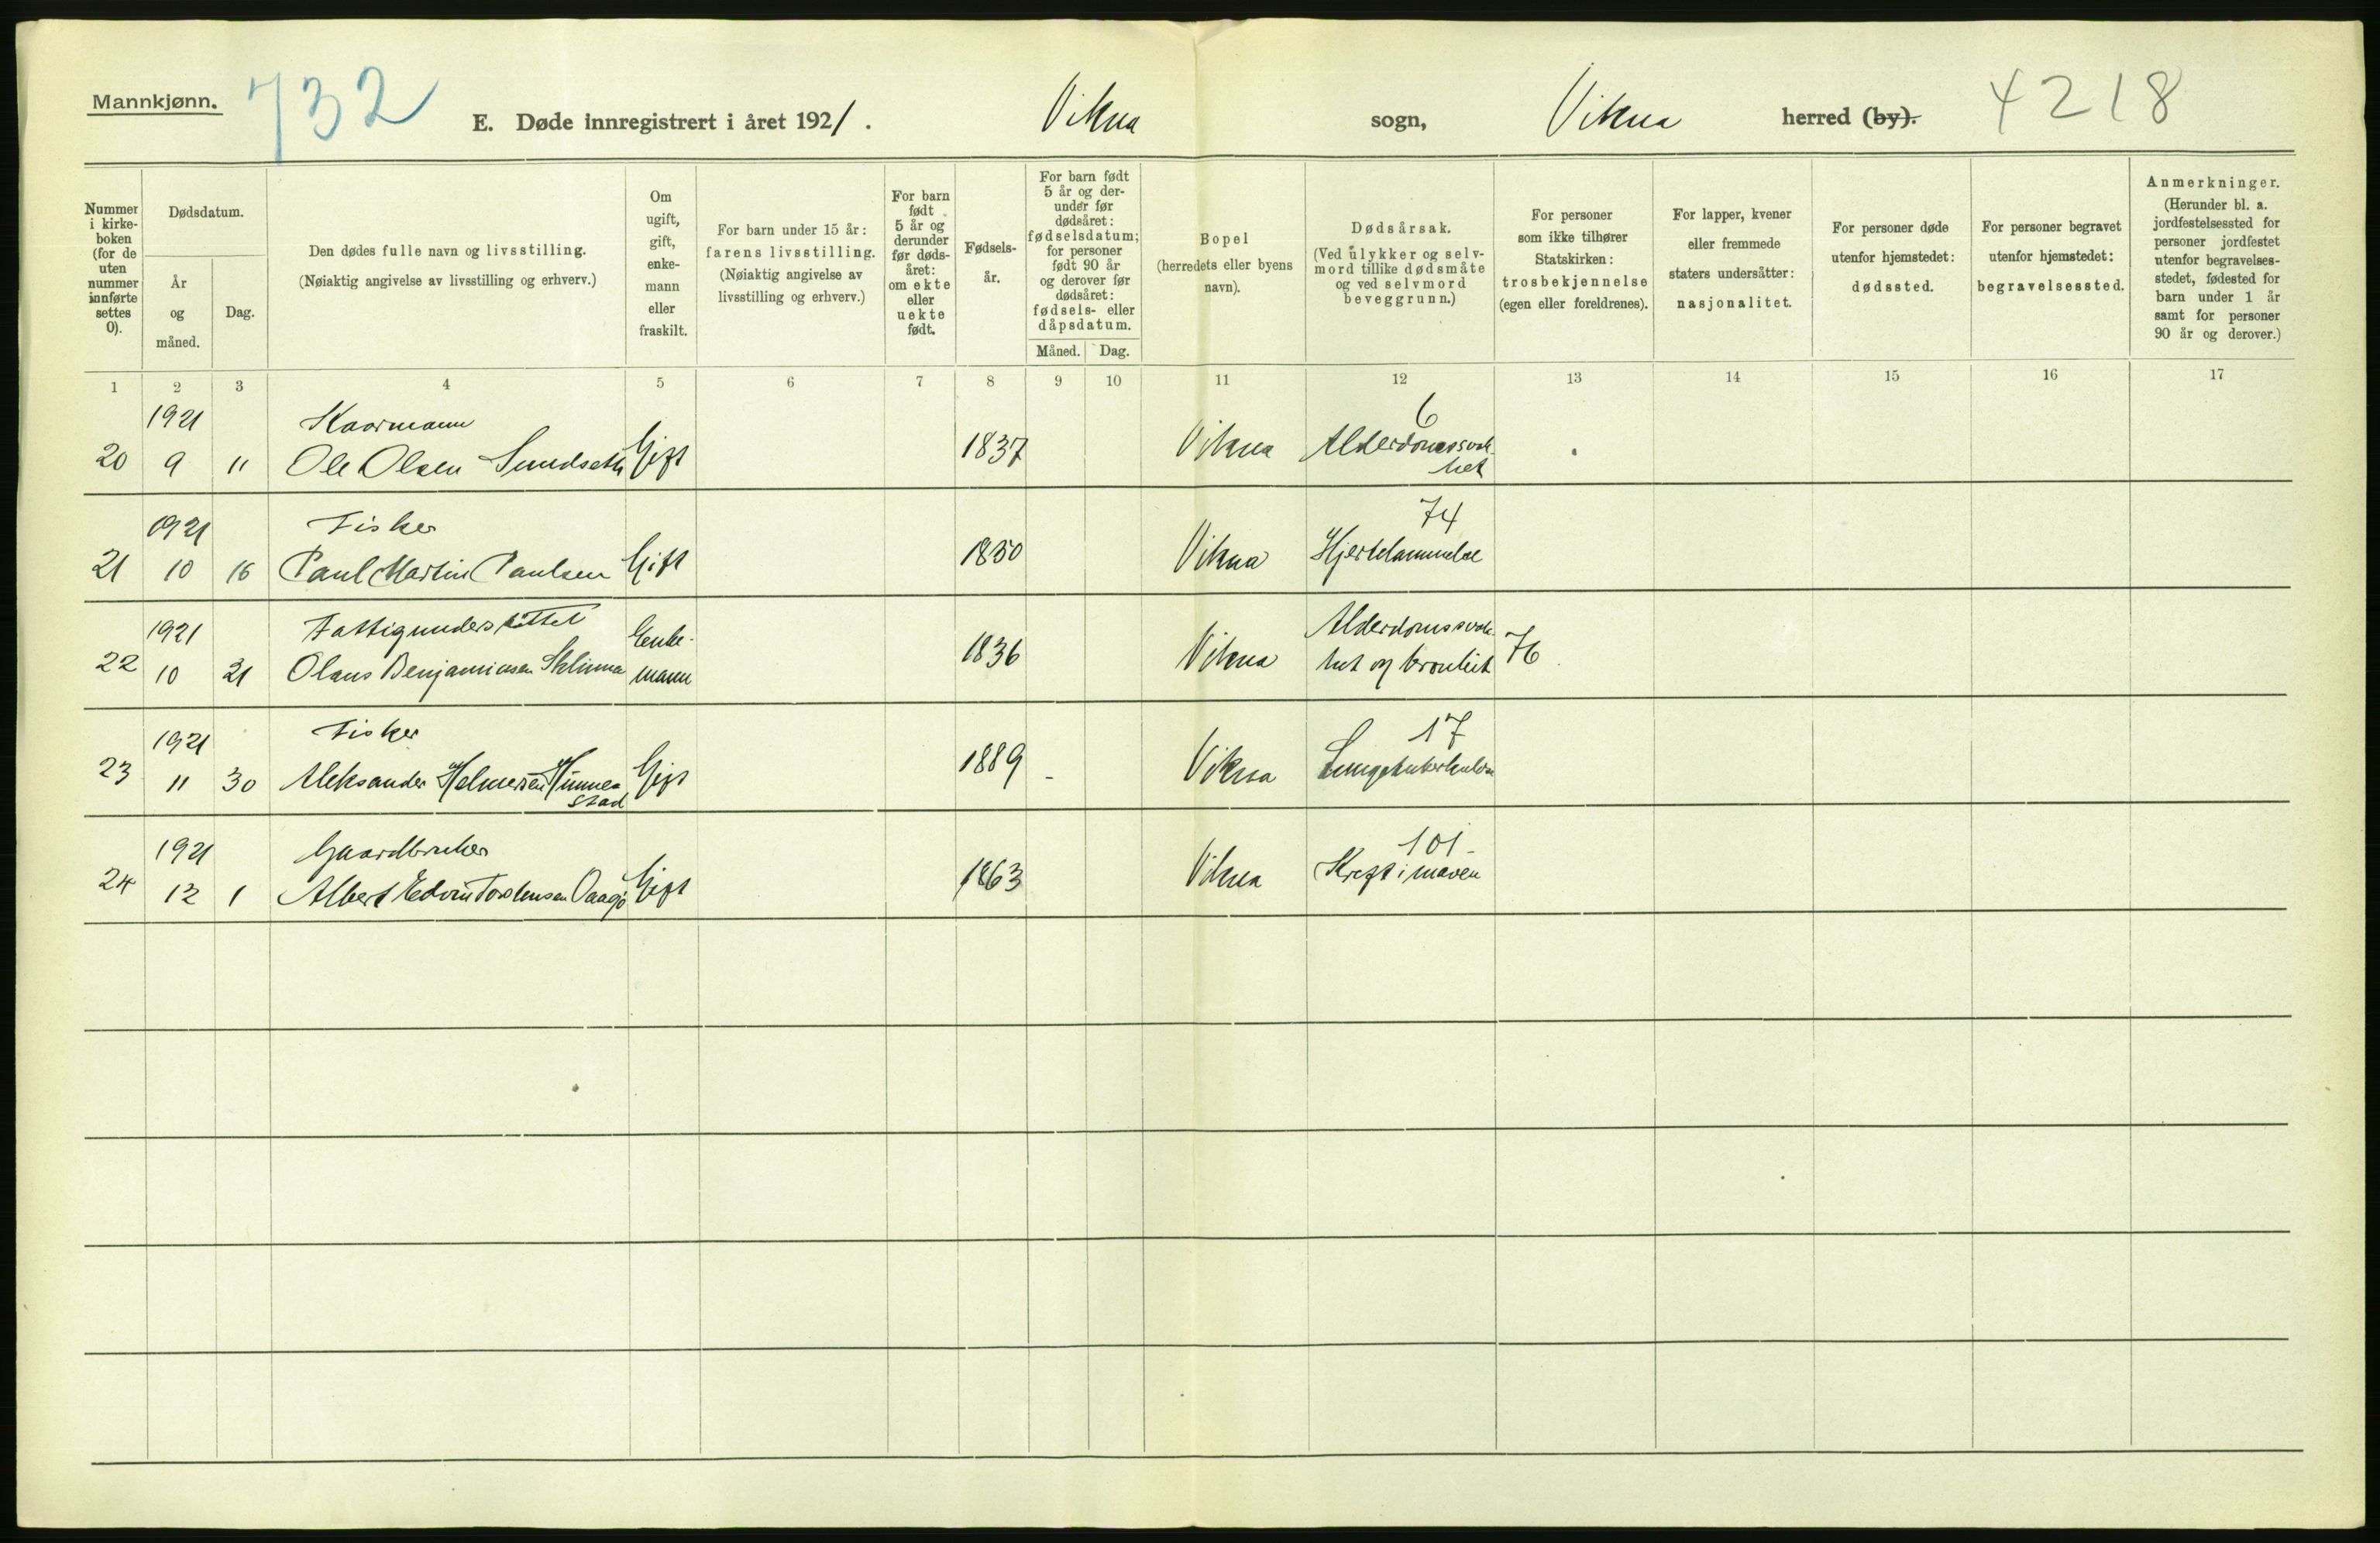 Mannkjønn.
732
E. Døde innregistrert i året 1921.
Vikna sogn, Vikna herred (by).
4218
Nummer i kirke- boken (for de uten nummer innførte settes 0).
Dødsdatum.
År og måned.
Dag.
Den dødes fulle navn og livsstilling.
(Nøiaktig angivelse av livsstilling og erhverv.)
Om ugift, gift, enke- mann eller fraskilt.
For barn under 15 år:
farens livsstilling.
(Nøiaktig angivelse av
livsstilling og erhverv.)
For barn født 5 år og derunder før døds- året: om ekte eller uekte født.
Fødsels- år.
For barn født 5 år og der- under før dødsåret: fødselsdatum; for personer født 90 år og derover før dødsåret: fødsels- eller dåpsdatum.
Måned. Dag.
Bopel
(herredets eller byens
navn).
Dødsårsak.
(Ved ulykker og selv-
mord tillike dødsmåte
og ved selvmord
beveggrunn.)
For personer
som ikke tilhører
Statskirken:
trosbekjennelse
(egen eller foreldrenes).
For lapper, kvener
eller fremmede
staters undersåtter:
nasjonalitet.
For personer døde
utenfor hjemstedet:
dødssted.
For personer begravet
utenfor hjemstedet:
begravelsessted.
Anmerkninger.
(Herunder bl. a.
jordfestelsessted for
personer jordfestet
utenfor begravelses-
stedet, fødested for
barn under 1 år
samt for personer
90 år og derover.)
1 2 3 4 5 6 7 8 9 10 11 12 13 14 15 16 17
1921 Kaarmann 6
20 9 11 Ole Olsen Sundseth Gift 1837 Vikna Alderdomssvak-
het
1921 Fisker 74
21 10 16 Paul Martin Paulsen Gift 1850 Vikna Hjertelammelse
1921 Fattigunderstøttet Enke- Alderdomssvak-
22 10 21 Olaus Benjaminsen Sklinna mann 1836 Vikna het og bronkit 76
1921 Fisker 17
23 11 30 Aleksander Helmersen Hunne- Gift 1889 - Vikna Lungetuberkulose
stad
1921 Gaardbruker 101
24 12 1 Albert Edvin Torstensen Vaagø Gift 1863 Vikna Kreft i maven